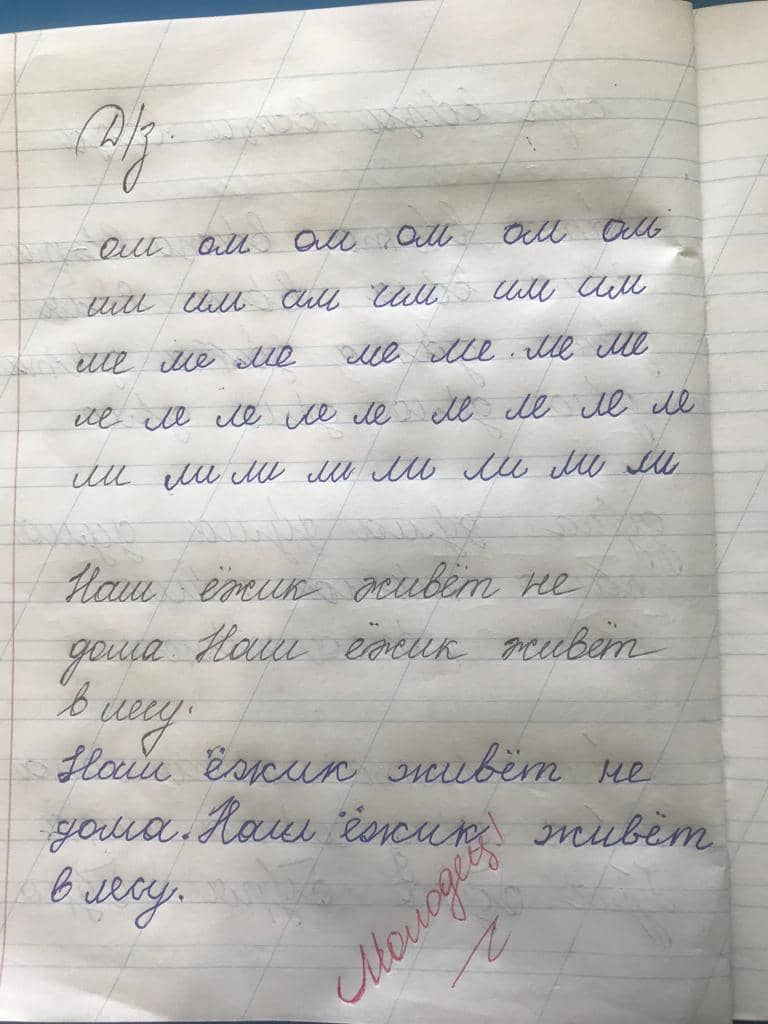 Д/з.
ом ом ом ом ом ом
им им им им им им
ме ме ме ме ме ме ме
ле ле ле ле ле ле ле ле ле
ли ли ли ли ли ли ли ли
Наш ёжик живёт не
дома. Наш ёжик живёт
в лесу.
Наш ёжик живёт не
дома. Наш ёжик живёт
в лесу.
Молодец!